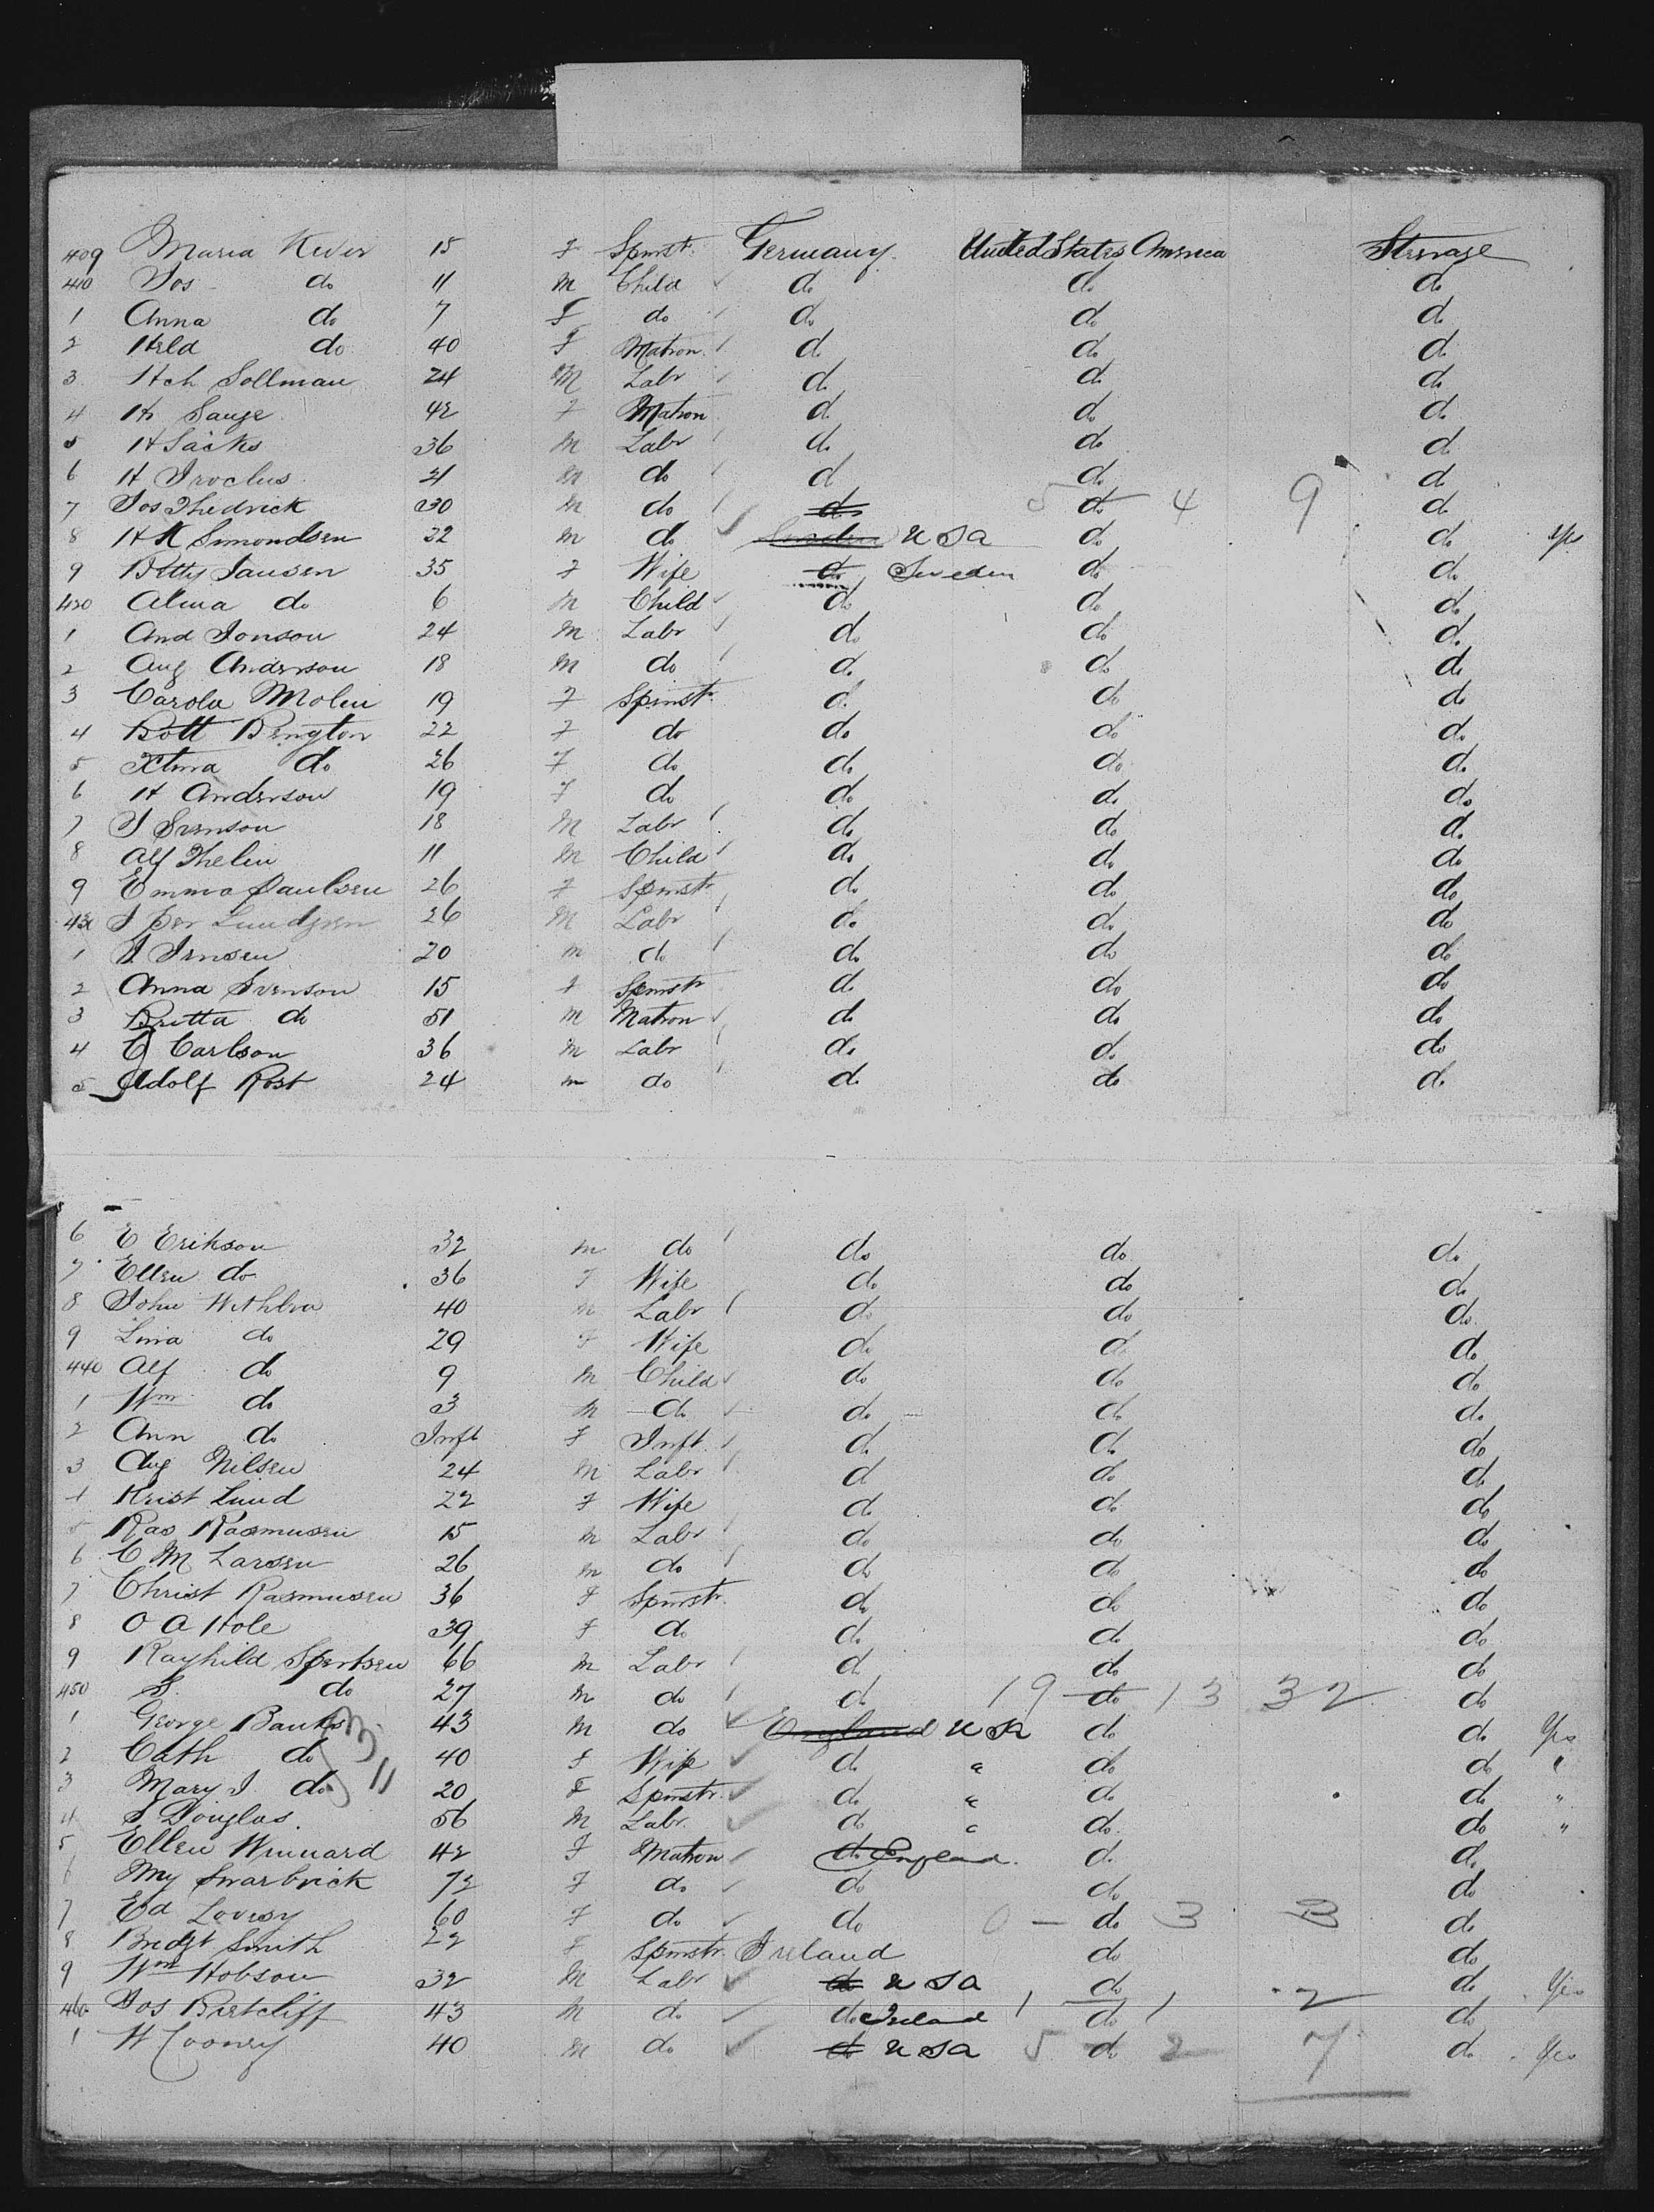 409 Maria Kever 15 F Spinst. Germany United States America Steerage
410 Jos do 11 M Child do do do
1 Anna do 7 F do do do do
2 Held do 40 F Matron do do do
3 Hch Sollman 24 M Labr do do do
4 Hr Sauge 42 F Matron do do do
5 H Sacks 36 M Labr do do do
6 H Iroclus 21 M do do do do
7 Jos Thedrick 30 M do do 5 do 4 9 do
8 H K Simondsen 22 m do Sweden U S A do do Yes
9 Betty Jansen 35 F Wife do Sweden do do
420 Alma do 6 M Child do do do
1 And Jonson 24 M Labr do do do
2 Aug Anderson 18 M do do do do
3 Carola Molin 19 F Spinstr do do do
4 Bott Bengton 22 F do do do do
5 Xtina do 26 F do do do do
6 H Anderson 19 F do do do do
7 J Svenson 18 M Labr do do do
8 Alf Thelin 11 M Child do do do
9 Emma Paulsen 26 F Spinstr do do do
430 J Per Lundgren 26 M Labr do do do
1 J Jensen 20 m do do do do
2 Anna Svenson 15 F Spinstr do do do
3 Britta do 51 M Matron do do do
4 C J Carlson 36 M Labr do do do
5 Adolf Rost 24 m do do do do
6 E Erikson 32 m do do do do
7 Ellen do 36 F Wife do do do
8 John Withlva 40 m Labr do do do
9 Lina do 29 F Wife do do do
440 Alf do 9 M Child do do do
1 Wm do 3 M do do do do
2 Ann do Inft F Inft. do do do
3 Aug Nilsen 24 M Labr do do do
4 Krist Lund 22 F Wife do do do
5 Ras Rasmusen 15 M Labr do do do
6 C M Larsen 26 m do do do do
7 Christ Rasmusen 36 F Spinstr. do do do
8 O A Hole 39 F do do do do
9 Rayhild Spertsen 66 m Labr do do do
450 S. do 27 M do do 19 do 13 32 do
1 George Banks 43 M do England U S A do do Yes
2 Cath do 40 F Wife do " do do "
3 Mary J. do 20 F Spinstr. do " do do "
4 S Douglas. 56 M Labr. do " do do "
5 Ellen Winnard 42 F Matron do England. do do
6 My Swarbrick 72 F do do do do
7 Ed Lovesy 60 F do do 0 — do 3 3 do
8 Bridgt Smith 22 F Spinstr. Ireland do do
9 Wm Hobson 32 M Labr do U S A do do Yes
460 Jos Rietcliff 43 M do do Ireland 1 do 1 2 do
1 W Cooney 40 M do do U S A 5 do 2 7 do Yes